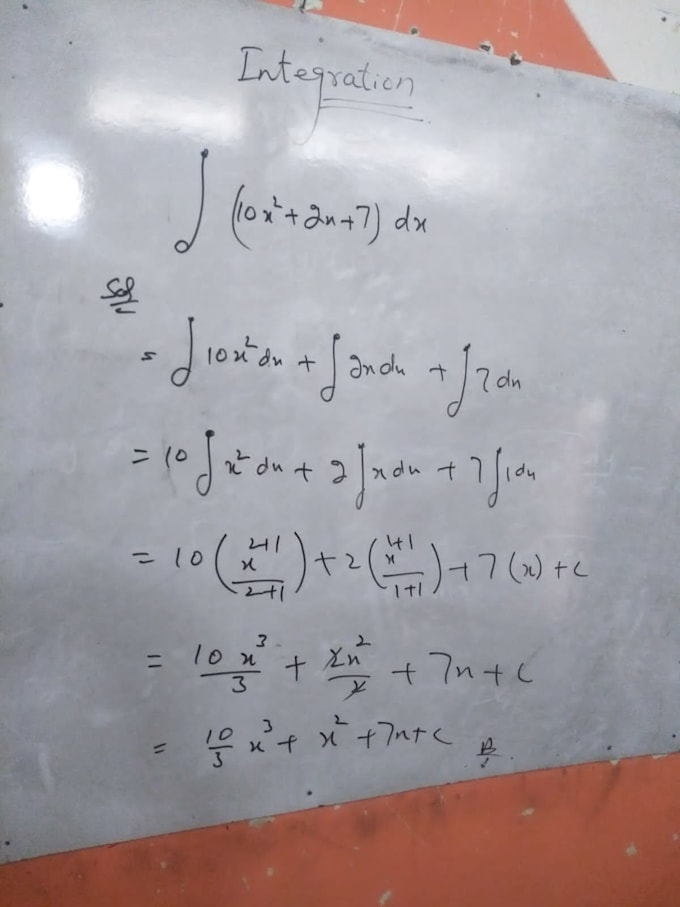 Integration
∫ (10x² + 2x + 7) dx
Sol
= ∫ 10x² dx + ∫ 2x dx + ∫ 7 dx
= 10 ∫ x² dx + 2 ∫ x dx + 7 ∫ 1 dx
= 10 (x²⁺¹/2+1) + 2 (x¹⁺¹/1+1) + 7 (x) + c
= 10 x³/3 + 2x²/2 + 7x + c
= 10/3 x³ + x² + 7x + c